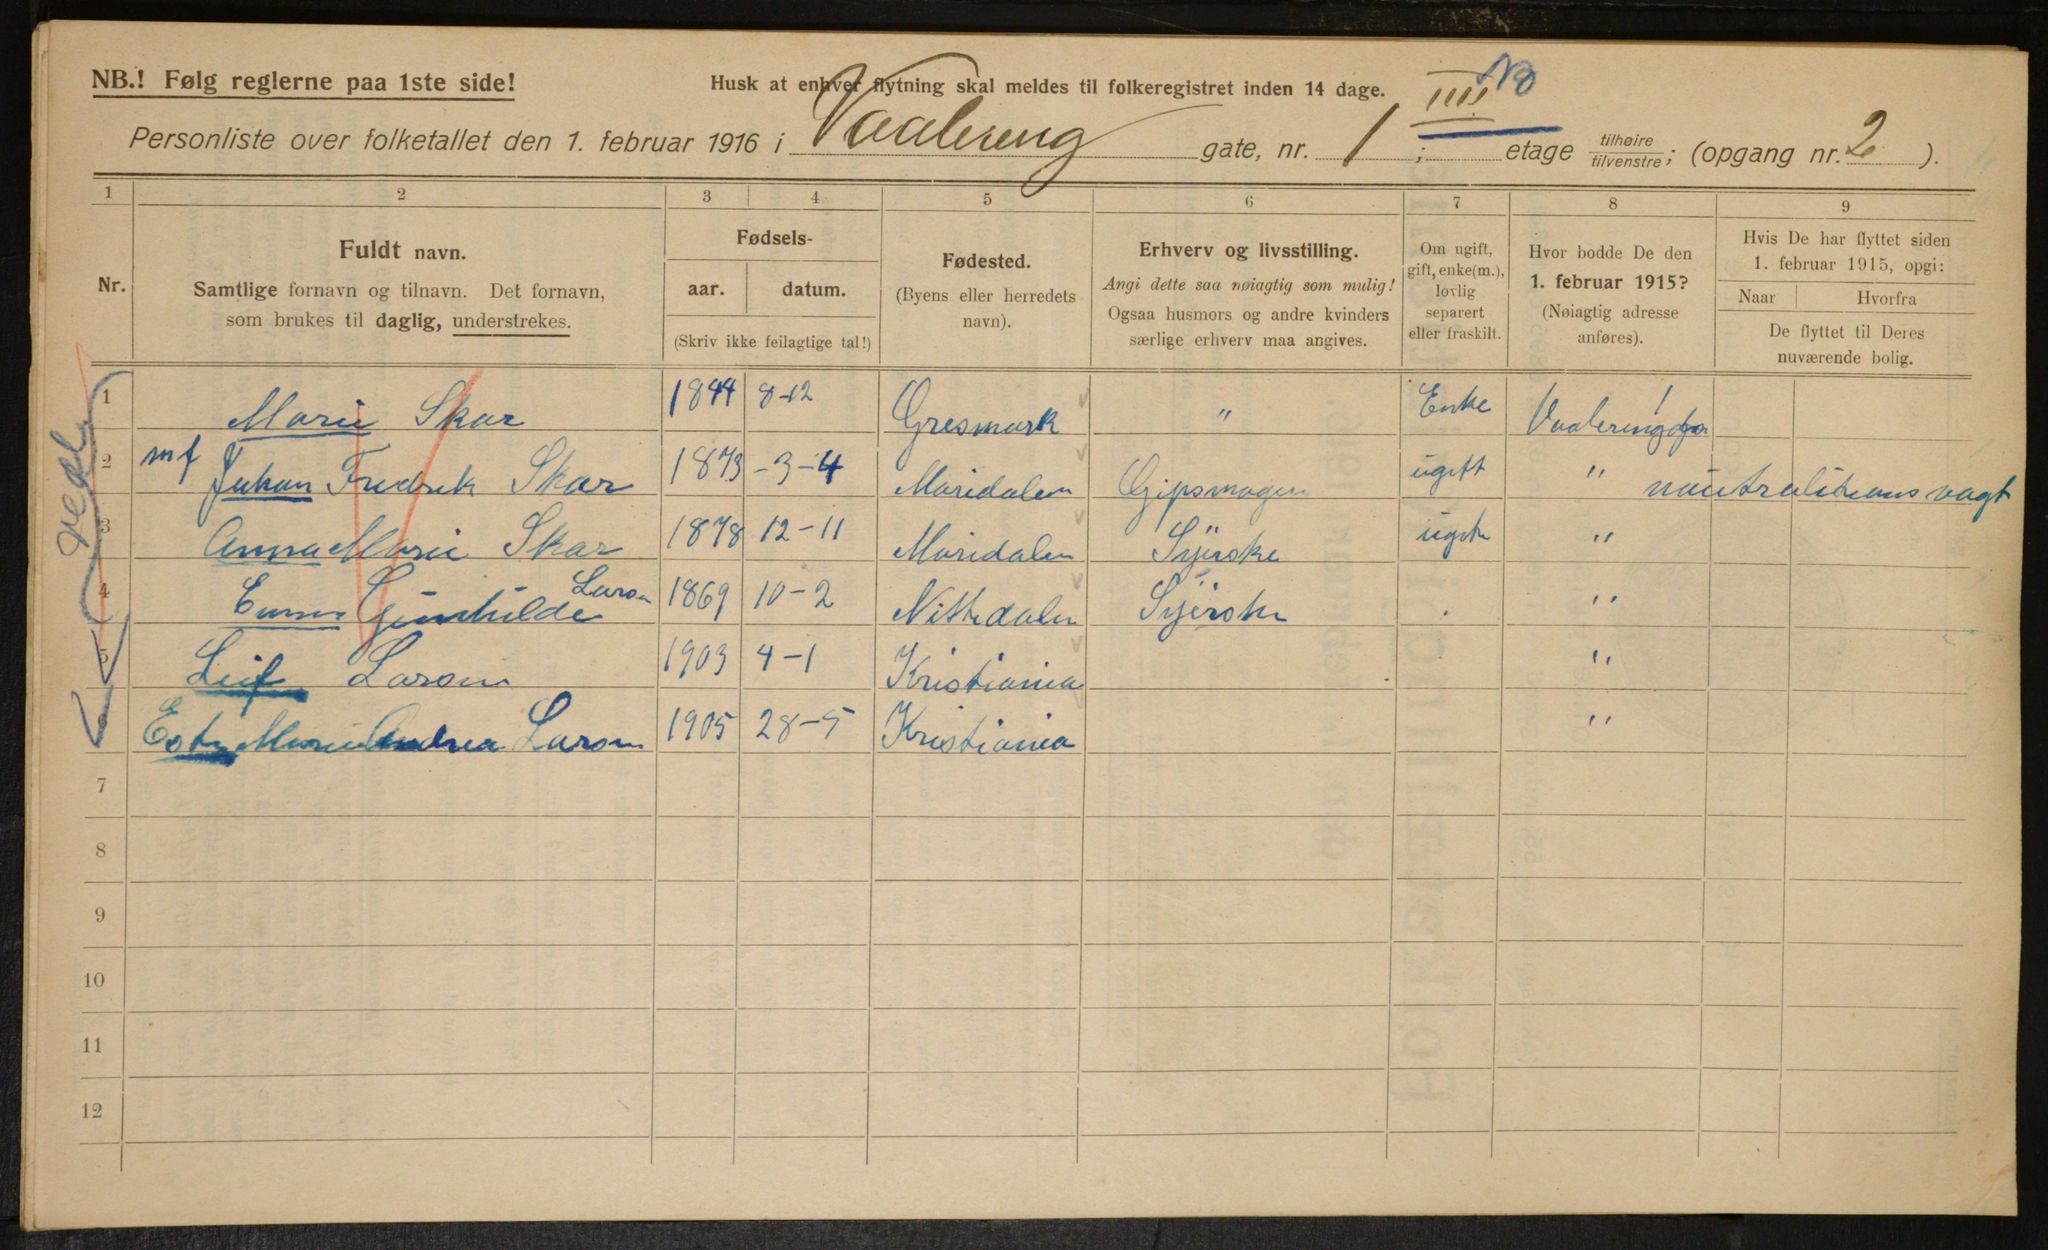 NB.! Følg reglerne paa 1ste side!
Husk at enhver flytning skal meldes til folkeregistret inden 14 dage.
IIII
Personliste over folketallet den 1. februar 1916 i Vaalereng gate, nr. 1 ; etage tilhøire/tilvenstre; (opgang nr. 2 ).
1 2 3 4 5 6 7 8 9
Nr.
Fuldt navn.
Samtlige fornavn og tilnavn. Det fornavn,
som brukes til daglig, understrekes.
Fødsels-
aar. datum.
(Skriv ikke feilagtige tal!)
Fødested.
(Byens eller herredets
navn).
Erhverv og livsstilling.
Angi dette saa nøiagtig som mulig!
Ogsaa husmors og andre kvinders
særlige erhverv maa angives.
Om ugift,
gift, enke(m.),
lovlig
separert
eller fraskilt.
Hvor bodde De den
1. februar 1915?
(Nøiagtig adresse
anføres).
Hvis De har flyttet siden
1. februar 1915, opgi:
Naar Hvorfra
De flyttet til Deres
nuværende bolig.
1 Marie Skar 1844 8-12 Gresmark " Enke Vaalerengga 1
2 mf Johan Fredrik Skar 1873 -3-4 Maridalen Gipsmager ugift " nøutralitetans vagt
3 Anna Marie Skar 1878 12-11 Maridalen Syerske ugift "
4 Emma Gunhilde Larsen 1869 10-2 Nittedalen Syerske . "
5 Leif Larsen 1903 4-1 Kristiania "
Marie Andrea Larsen 1905 28-5 Kristiania "
7
8
9
10
11
12